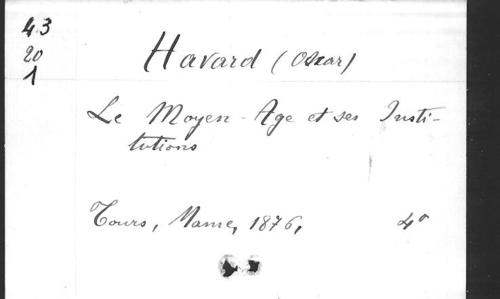 43
20
1
Havard (Oscar)
Le Moyen-Age et ses Insti-
tutions
Tours, Mame, 1876, 4°